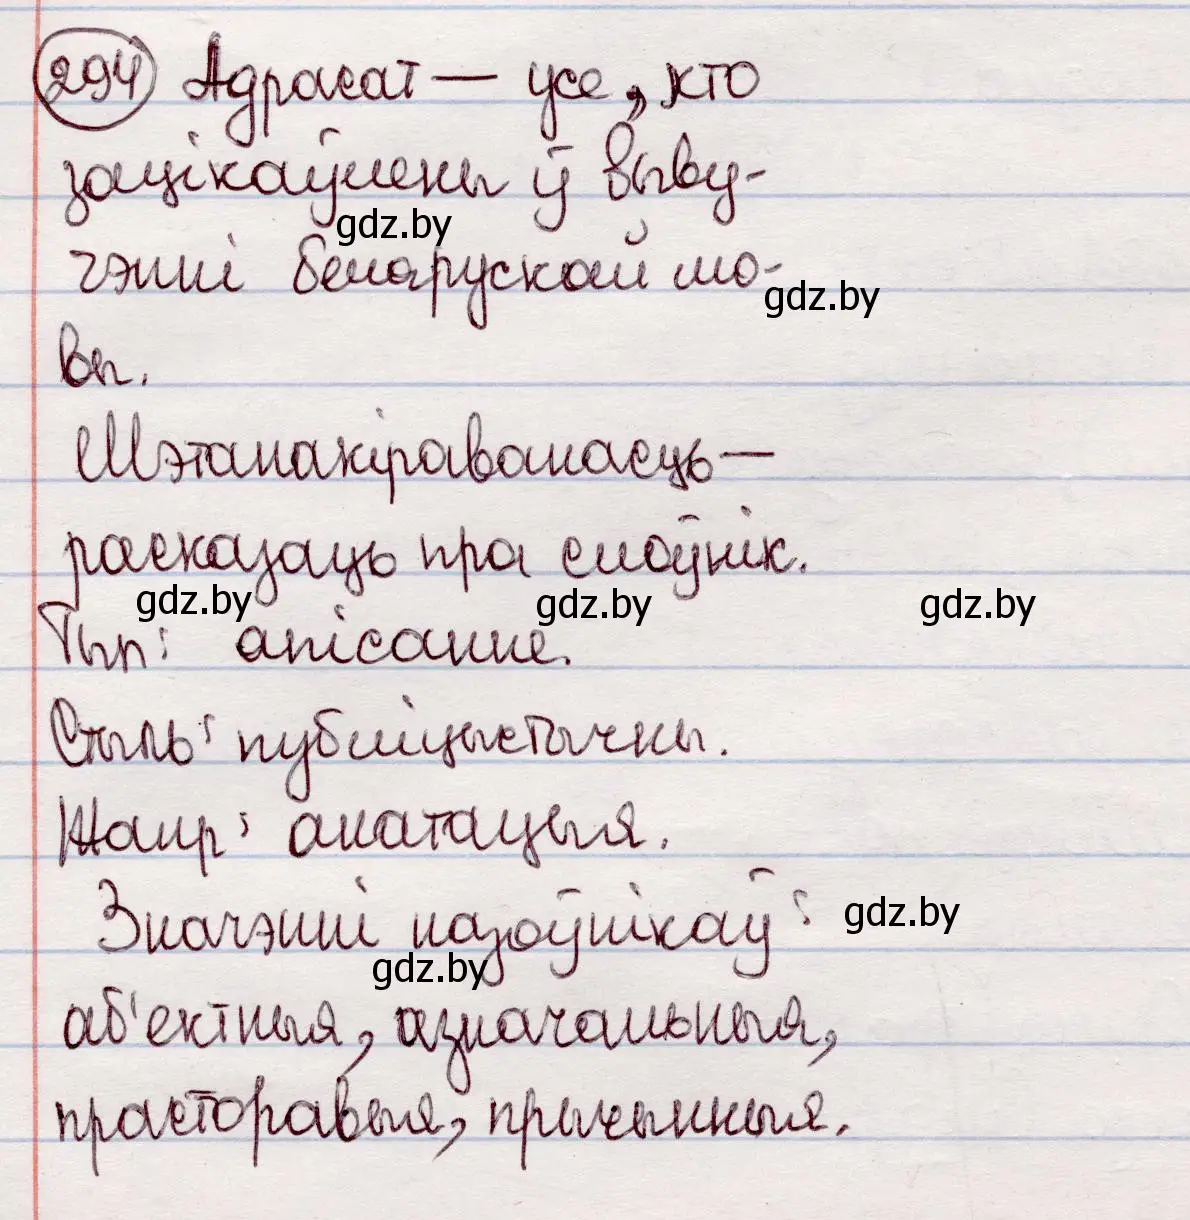 294 Адрасат — усе, хто
зацікаўлены ў выву-
gdz.by
чэнні беларускай мо-
gdz.by
вы.
Мэтанакіраванасць —
расказаць пра слоўнік.
gdz.by gdz.by gdz.by
Тып: апісанне.
Стыль: публіцыстычны.
Жанр: анатацыя.
Значэнні назоўнікаў:
gdz.by
gdz.by
аб'ектныя, азначальныя,
прасторавыя, прычынныя.